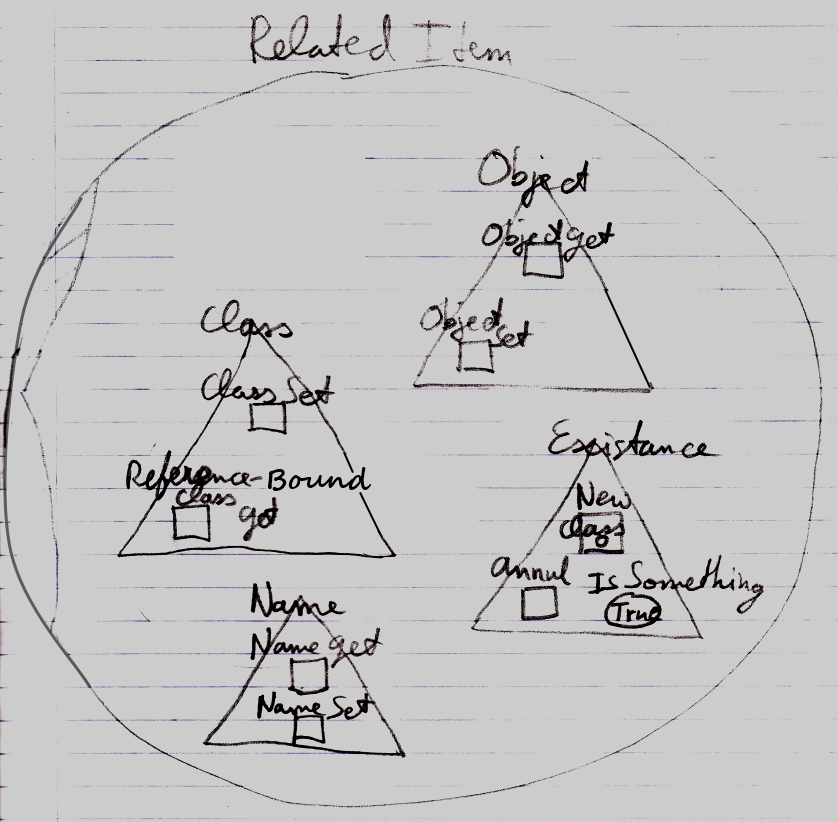 Related Item
Object
Object get
Object
Set
Class
Class Set
Reference-Bound
Class
get
Existance
New
Class
annul
Is Something
True
Name
Name get
Name Set